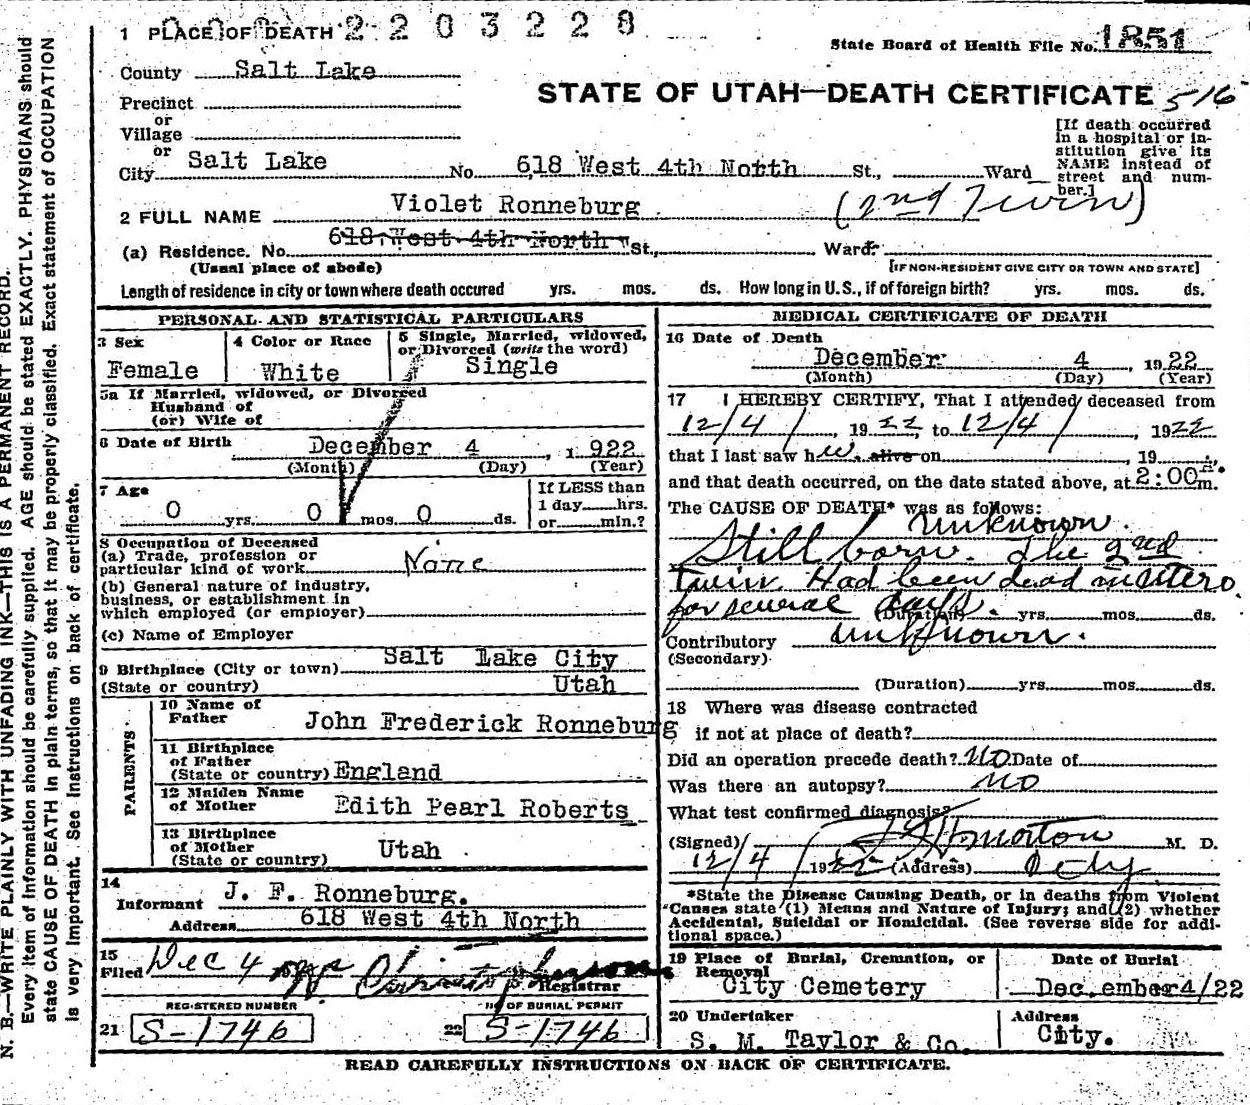 1 PLACE OF DEATH 2203228
State Board of Health File No. 1851
County Salt Lake
STATE OF UTAH—DEATH CERTIFICATE 516
Precinct
or
Village
or
City Salt Lake No. 618 West 4th North St., Ward
[If death occurred
in a hospital or in-
stitution give its
NAME instead of
street and num-
ber.]
2 FULL NAME Violet Ronneburg (2nd Twin)
(a) Residence. No. 618 West 4th North St., Ward.
(Usual place of abode) [IF NON-RESIDENT GIVE CITY OR TOWN AND STATE]
Length of residence in city or town where death occured yrs. mos. ds. How long in U.S., if of foreign birth? yrs. mos. ds.
PERSONAL AND STATISTICAL PARTICULARS
3 Sex
Female
4 Color or Race
White
5 Single, Married, widowed,
or Divorced (write the word)
Single
5a If Married, widowed, or Divorced
Husband of
(or) Wife of
6 Date of Birth December 4, 1922
(Month) (Day) (Year)
7 Age
0 yrs. 0 mos. 0 ds.
If LESS than
1 day hrs.
or min.?
8 Occupation of Deceased
(a) Trade, profession or
particular kind of work None
(b) General nature of industry,
business, or establishment in
which employed (or employer)
(c) Name of Employer
9 Birthplace (City or town) Salt Lake City
(State or country) Utah
PARENTS
10 Name of
Father John Frederick Ronneburg
11 Birthplace
of Father
(State or country) England
12 Maiden Name
of Mother Edith Pearl Roberts
13 Birthplace
of Mother
(State or country) Utah
14
Informant J. F. Ronneburg.
Address 618 West 4th North
15
Filed Dec 4
Registrar
REGISTERED NUMBER
21 S-1746
NO OF BURIAL PERMIT
22 S-1746
MEDICAL CERTIFICATE OF DEATH
16 Date of Death
December 4, 1922
(Month) (Day) (Year)
17 I HEREBY CERTIFY, That I attended deceased from
12/4/, 1922, to 12/4/, 1922
that I last saw h alive on , 19 ,
and that death occurred, on the date stated above, at 2:00 m.
The CAUSE OF DEATH* was as follows:
unknown.
Still born. The 2nd
Twin. Had been dead in utero
for several days. (Duration) yrs. mos. ds.
Contributory unknown.
(Secondary)
(Duration) yrs. mos. ds.
18 Where was disease contracted
if not at place of death?
Did an operation precede death? NO Date of
Was there an autopsy? NO
What test confirmed diagnosis?
(Signed) Morton M. D.
12/4/1922 (Address) City
*State the Disease Causing Death, or in deaths from Violent
Causes state (1) Means and Nature of Injury; and (2) whether
Accidental, Suicidal or Homicidal. (See reverse side for addi-
tional space.)
19 Place of Burial, Cremation, or
Removal
City Cemetery
Date of Burial
December 4/22
20 Undertaker
S. M. Taylor & Co.
Address
City.
READ CAREFULLY INSTRUCTIONS ON BACK OF CERTIFICATE.
N. B.—WRITE PLAINLY WITH UNFADING INK—THIS IS A PERMANENT RECORD.
Every item of information should be carefully supplied. AGE should be stated EXACTLY. PHYSICIANS should
state CAUSE OF DEATH in plain terms, so that it may be properly classified. Exact statement of OCCUPATION
is very important. See instructions on back of certificate.